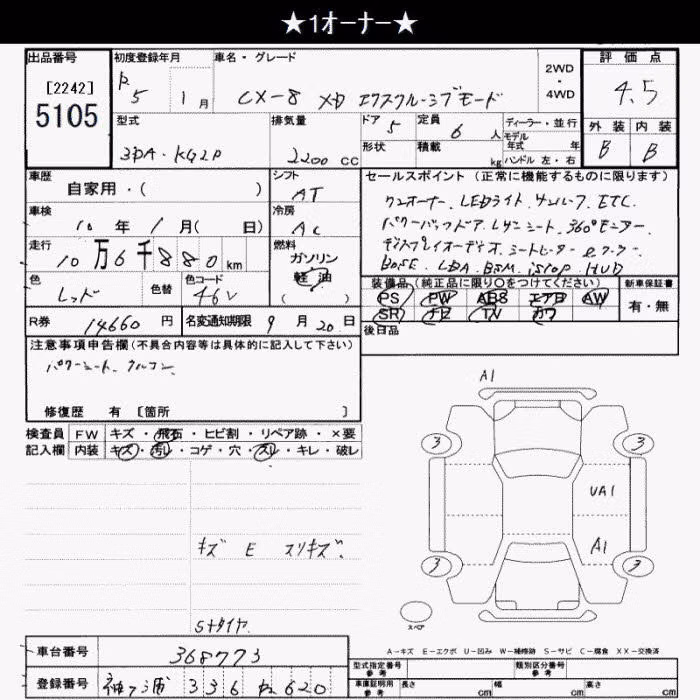 ★1オーナー★
出品番号
[2242]
5105
初度登録年月
R5 1月
車名・グレード
CX-8 XD エクスクルーシブモード
2WD・4WD
評価点
4.5
型式
3DA・KG2P
排気量
2200 CC
ドア 5
定員 6 人
形状
積載 kg
ディーラー・並行
モデル年式 年
ハンドル 左・右
外装 内装
B B
車歴
自家用・( )
シフト
AT
車検
10年 1月( 日)
冷房
AC
走行
10万6千880 km
燃料
ガソリン
軽油
( )
色
レッド
色替
色コード
46V
R券 14660 円
名変通知期限 9月20日
セールスポイント(正常に機能するものに限ります)
ワンオーナー、LEDライト サンルーフ ETC
パワーバックドア、レザーシート、360°モニター
ディスプレイオーディオ、シートヒーター
BOSE LDA BSM iSTOP HUD
装備品(純正品に限り○をつけてください)
PS PW ABS エアB AW
SR ナビ TV カワ
新車保証書
有・無
後日品
注意事項申告欄(不具合内容等は具体的に記入して下さい)
パワーシート、クルコン、
修復歴 有 [箇所 ]
検査員記入欄
FW キズ・飛石・ヒビ割・リペア跡・×要
内装 キズ・汚レ・コゲ・穴・スレ・キレ・破レ
キズ E スリキズ
Sタイヤ
A1
3 3
UA1
A1
3 3
スペア
A-キズ E-エクボ U-凹み W-補修跡 S-サビ C-腐食 XX-交換済
車台番号 368773
登録番号 336 620
型式指定番号 参考
類別区分番号 参考
車庫証明用 参考 長さ cm 幅 cm 高さ cm